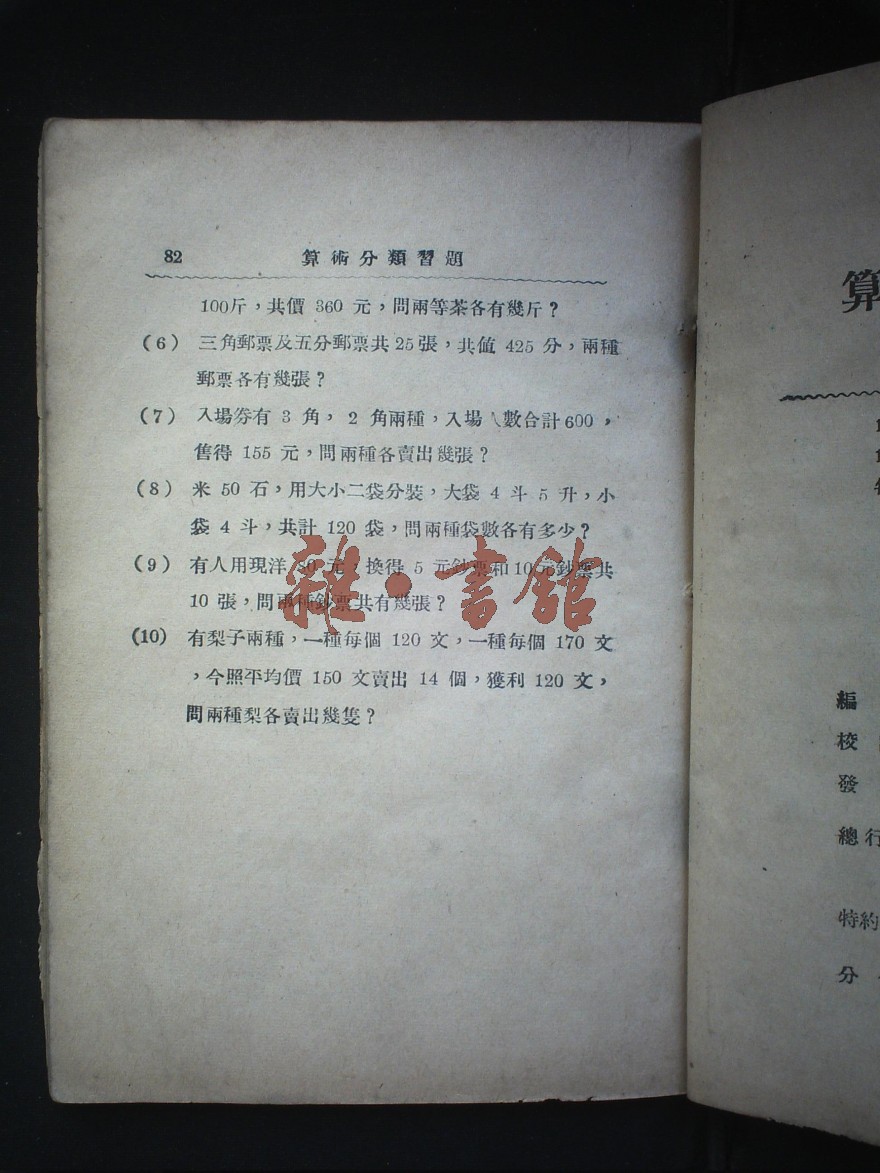 82 算術分類習題
100斤，共價 360 元，問兩等茶各有幾斤？
(6) 三角郵票及五分郵票共25張，共値 425 分，兩種
郵票各有幾張？
(7) 入場劵有 3 角， 2 角兩種，入場人數合計600，
售得 155 元，問兩種各賣出幾張？
(8) 米 50 石，用大小二袋分裝，大袋 4 斗 5 升，小
袋 4 斗，共計 120 袋，問兩種袋數各有多少？
(9) 有人用現洋 80 元，換得 5 元鈔票和10元鈔票共
10 張，問兩種鈔票共有幾張？
(10) 有梨子兩種，一種每個 120 文，一種每個 170 文
，今照平均價 150 文賣出 14 個，獲利 120 文，
問兩種梨各賣出幾隻？
雜·書館
算
編
校
發
總行
特約
分